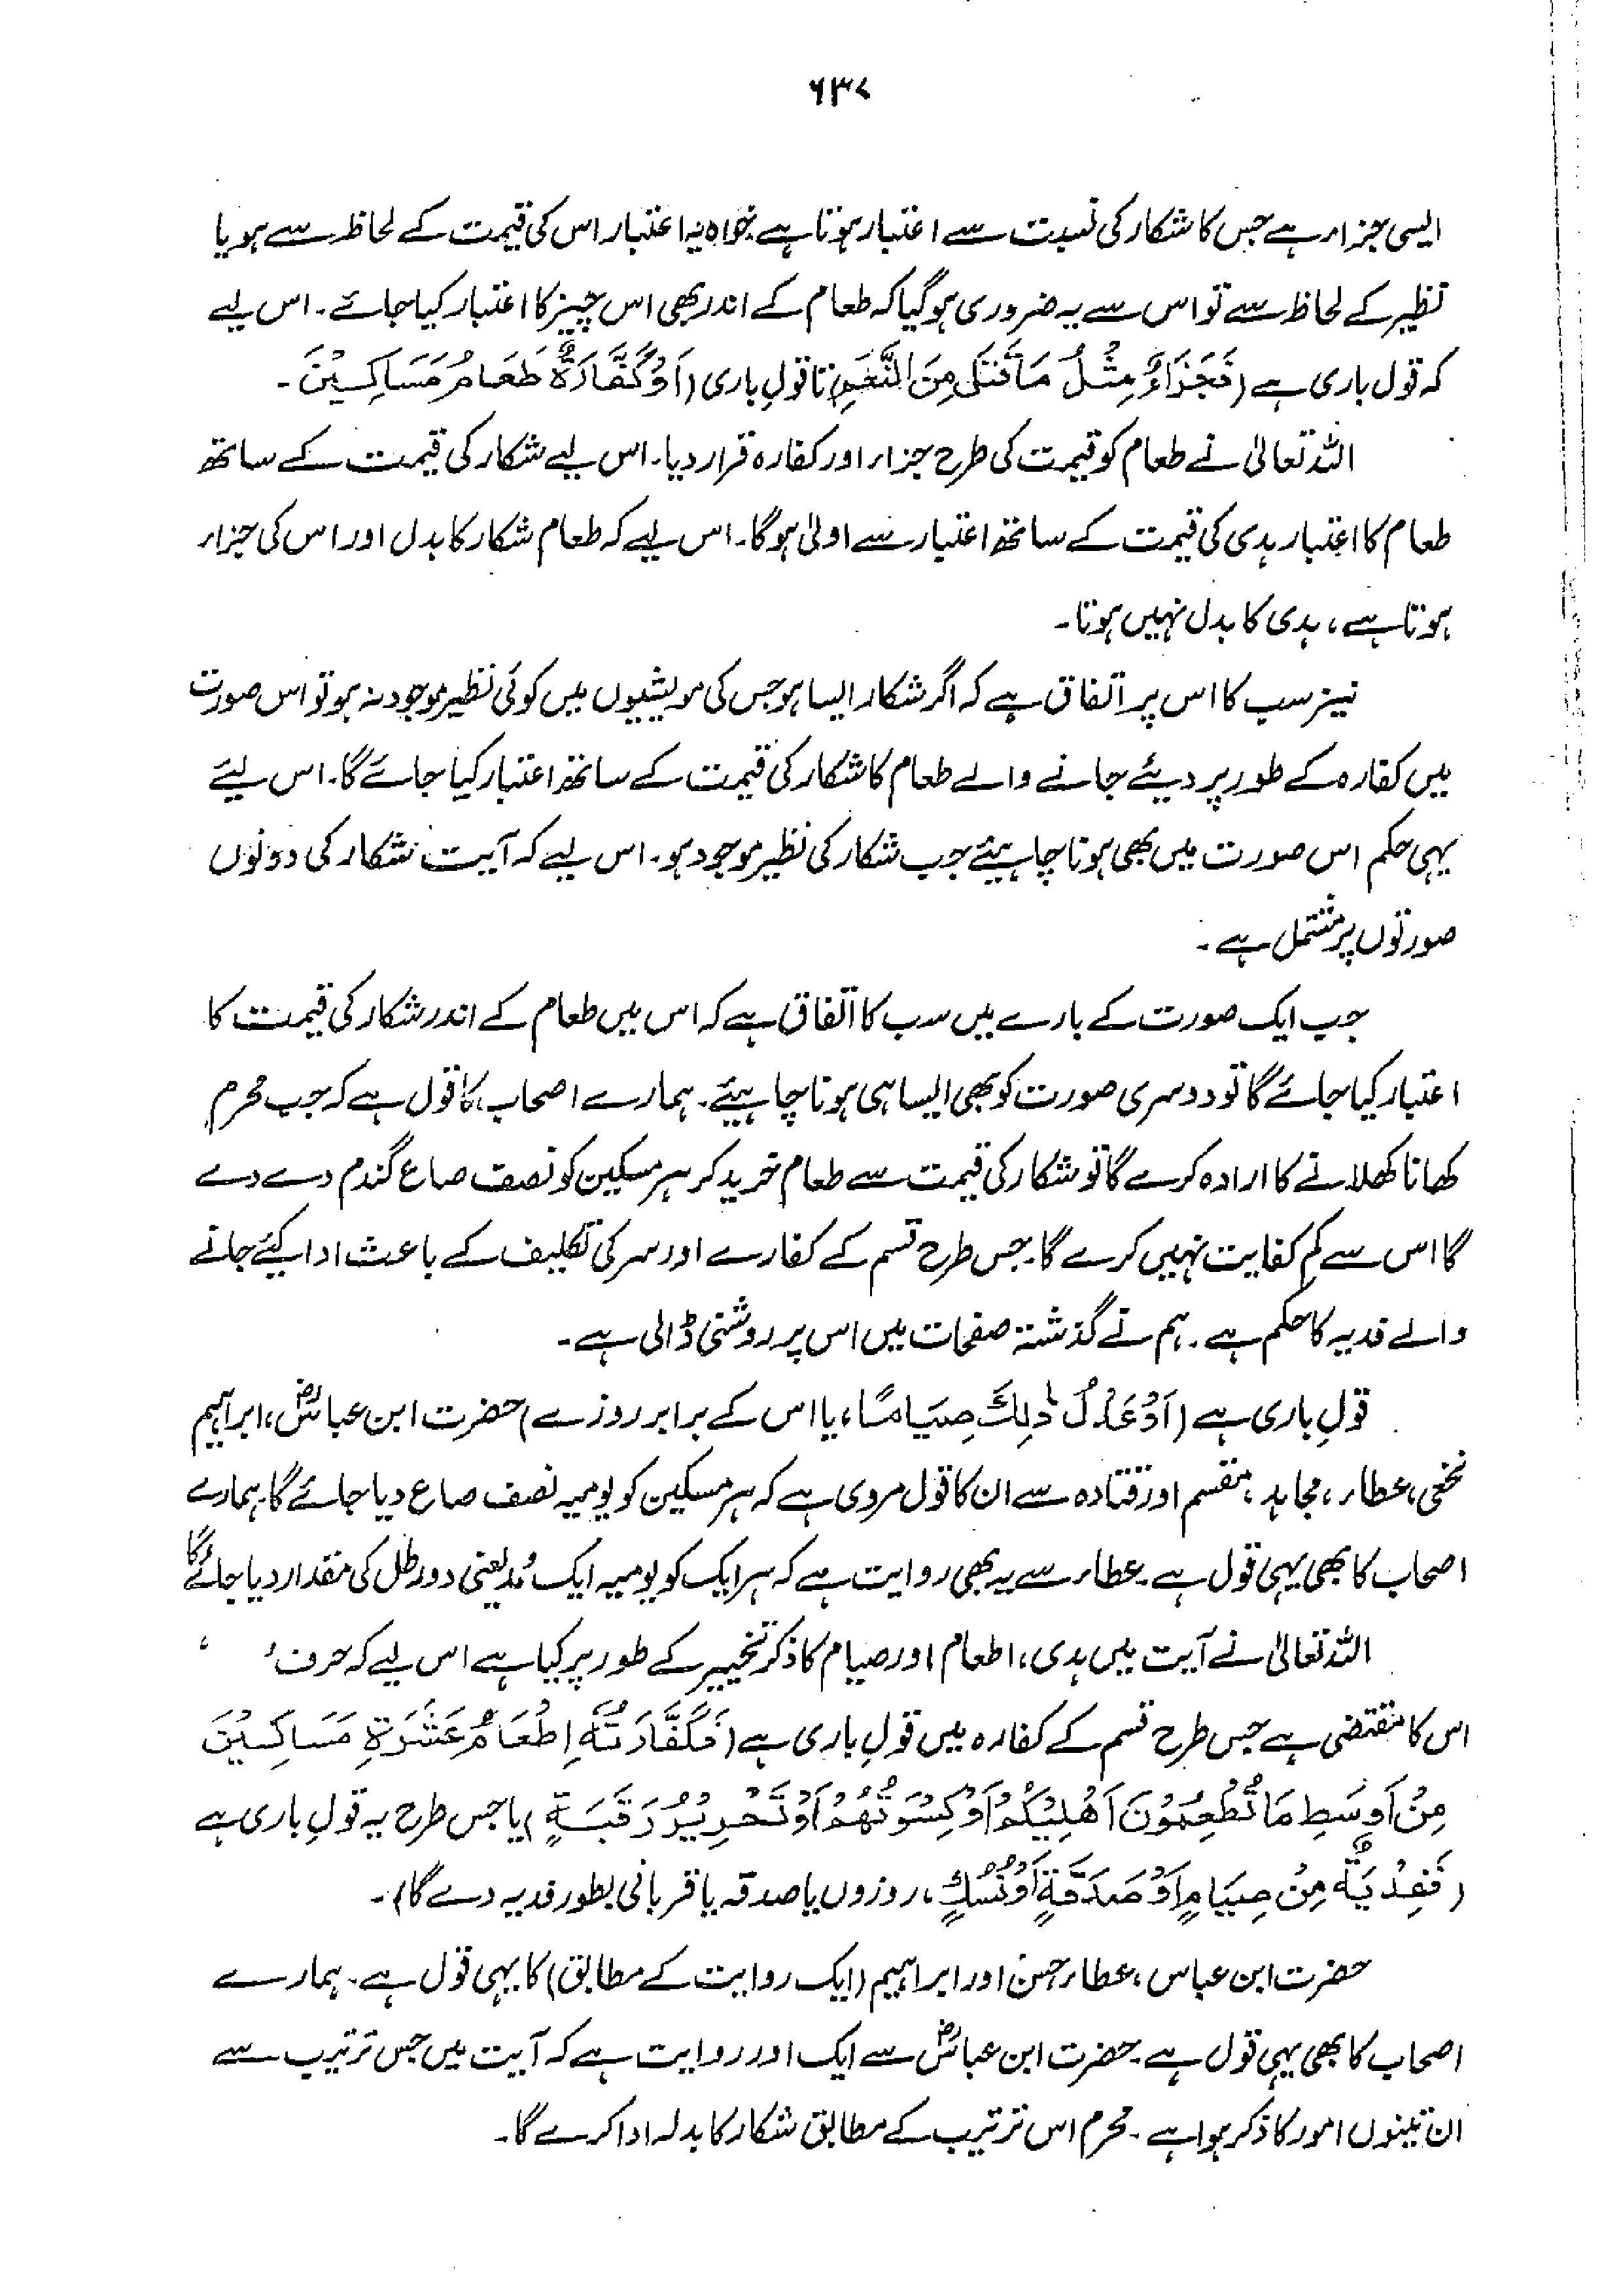 ۶۳۷
ایسی جزاء ہے جس کا شکار کی نسبت سے اعتبار ہوتا ہے خواہ یہ اعتبار اس کی قیمت کے لحاظ سے ہو یا
نظیر کے لحاظ سے تو اس سے یہ ضروری ہو گیا کہ طعام کے اندر بھی اس چیز کا اعتبار کیا جائے۔ اس لیے
کہ قول باری ہے (فَجَزَاءٌ مِثْلُ مَا قَتَلَ مِنَ النَّعَمِ) تا قولِ باری (اَوْ كَفَّارَةٌ طَعَامُ مَسَاكِيْنَ۔
اللہ تعالیٰ نے طعام کو قیمت کی طرح جزاء اور کفارہ قرار دیا۔ اس لیے شکار کی قیمت کے ساتھ
طعام کا اعتبار ہدی کی قیمت کے ساتھ اعتبار سے اولیٰ ہو گا۔ اس لیے کہ طعام شکار کا بدل اور اس کی جزاء
ہوتا ہے، ہدی کا بدل نہیں ہوتا۔
نیز سب کا اس پر اتفاق ہے کہ اگر شکار ایسا ہو جس کی مویشیوں میں کوئی نظیر موجود نہ ہو تو اس صورت
میں کفارہ کے طور پر دیئے جانے والے طعام کا شکار کی قیمت کے ساتھ اعتبار کیا جائے گا۔ اس لیئے
یہی حکم اس صورت میں بھی ہونا چاہیئے جب شکار کی نظیر موجود ہو۔ اس لیے کہ آیت شکار کی دونوں
صورتوں پر مشتمل ہے۔
جب ایک صورت کے بارے میں سب کا اتفاق ہے کہ اس میں طعام کے اندر شکار کی قیمت کا
اعتبار کیا جائے گا تو دوسری صورت کو بھی ایسا ہی ہونا چاہیئے۔ ہمارے اصحاب کا قول ہے کہ جب محرم
کھانا کھلانے کا ارادہ کرے گا تو شکار کی قیمت سے طعام خرید کر ہر مسکین کو نصف صاع گندم دے دے
گا اس سے کم کفایت نہیں کرے گا۔ جس طرح قسم کے کفارے اور سر کی تکلیف کے باعث ادا کیئے جانے
والے فدیہ کا حکم ہے۔ ہم نے گذشتہ صفحات میں اس پر روشنی ڈالی ہے۔
قولِ باری ہے (اَوْ عَدْلُ ذٰلِكَ صِيَامًا، یا اس کے برابر روزے) حضرت ابن عباسؓ، ابراہیم
نخعی، عطاء، مجاہد، مقسم اور قتادہ سے ان کا قول مروی ہے کہ ہر مسکین کو یومیہ نصف صاع دیا جائے گا۔ ہمارے
اصحاب کا بھی یہی قول ہے۔ عطاء سے یہ بھی روایت ہے کہ ہر ایک کو یومیہ ایک مُد یعنی دو رطل کی مقدار دیا جائے گا
اللہ تعالیٰ نے آیت میں ہدی، اطعام اور صیام کا ذکر تخییر کے طور پر کیا ہے اس لیے کہ حرف ' '
اس کا مقتضی ہے جس طرح قسم کے کفارہ میں قولِ باری ہے (فَكَفَّارَتُهٗ اِطْعَامُ عَشَرَةِ مَسَاكِيْنَ
مِنْ اَوْسَطِ مَا تُطْعِمُوْنَ اَهْلِيْكُمْ اَوْ كِسْوَتُهُمْ اَوْ تَحْرِيْرُ رَقَبَةٍ) یا جس طرح یہ قولِ باری ہے
(فَفِدْيَةٌ مِنْ صِيَامٍ اَوْ صَدَقَةٍ اَوْ نُسُكٍ، روزوں یا صدقہ یا قربانی بطور فدیہ دے گا)۔
حضرت ابن عباس، عطاء، حسن اور ابراہیم (ایک روایت کے مطابق) کا یہی قول ہے۔ ہمارے
اصحاب کا بھی یہی قول ہے۔ حضرت ابن عباسؓ سے ایک اور روایت ہے کہ آیت میں جس ترتیب سے
ان تینوں امور کا ذکر ہوا ہے۔ محرم اس ترتیب کے مطابق شکار کا بدلہ ادا کرے گا۔